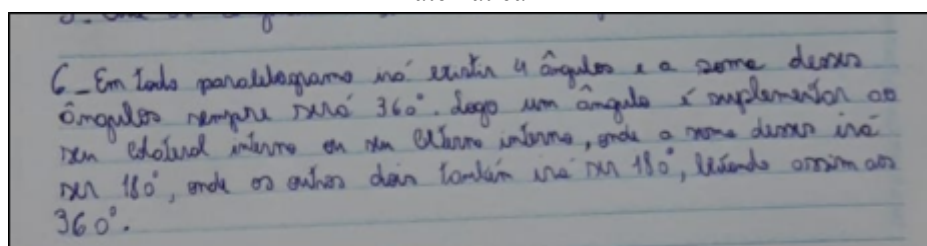 6_Em todo paralelogramo irá existir 4 ângulos e a soma desses
ângulos sempre será 360°. Logo um ângulo é suplementar ao
seu colateral interno ou seu alterno interno, onde a soma desses irá
ser 180°, onde os outros dois também irá ser 180°, levando assim aos
360°.